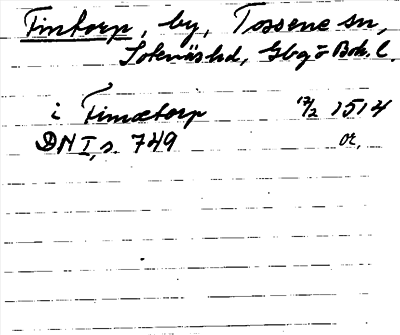 Fintorp, by, Tossene sn,
Sotenäs hd, Gbg o Boh. l.
i Fimætorp 17/2 1514
DN I, s. 749 or.